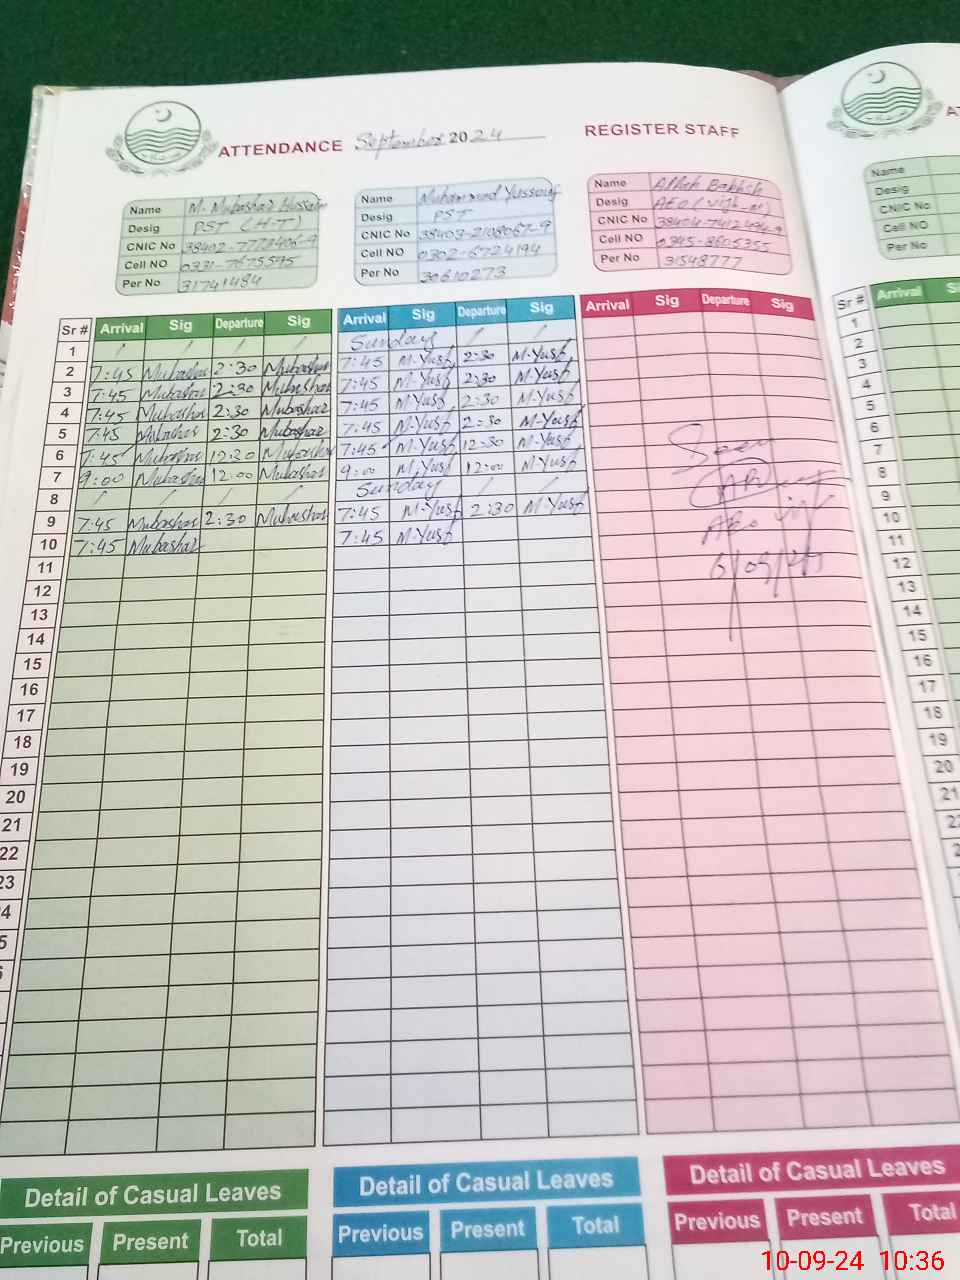 ATTENDANCE September 2024 REGISTER STAFF
Name M. Mubashar Hussain
Desig PST (H-T)
CNIC No 38402-7778406-9
Cell NO 0331-7675595
Per No 31741484
Name Muhammad Yussouf
Desig PST
CNIC No 38403-2108067-9
Cell NO 0302-6724194
Per No 30610273
Name Allah Bakhsh
Desig AEO
CNIC No
Cell NO 0345-8605355
Per No 31548777
Name
Desig
CNIC No
Cell NO
Per No
Sr # Arrival Sig Departure Sig Arrival Sig Departure Sig Arrival Sig Departure Sig Sr # Arrival
1 / / / / Sunday / / 1
2 7:45 Mubashar 2:30 Mubashar 7:45 M-Yusf 2:30 M-Yusf 2
3 7:45 Mubashar 2:30 Mubashar 7:45 M-Yusf 2:30 M-Yusf 3
4 7:45 Mubashar 2:30 Mubashar 7:45 M-Yusf 2:30 M-Yusf 4
5 7:45 Mubashar 2:30 Mubashar 7:45 M-Yusf 2:30 M-Yusf 5
6 7:45 Mubashar 12:30 Mubashar 7:45 M-Yusf 12:30 M-Yusf 6
7 9:00 Mubashar 12:00 Mubashar 9:00 M-Yusf 12:00 M-Yusf 7
8 / / / / Sunday / / 8
9 7:45 Mubashar 2:30 Mubashar 7:45 M-Yusf 2:30 M-Yusf 9
10 7:45 Mubashar 7:45 M-Yusf 10
Seen
AEO
11 11
12 12
13 13
14 14
15 15
16 16
17 17
18 18
19 19
20 20
21 21
22
23
Detail of Casual Leaves Detail of Casual Leaves Detail of Casual Leaves
Previous Present Total Previous Present Total Previous Present Total
10-09-24 10:36